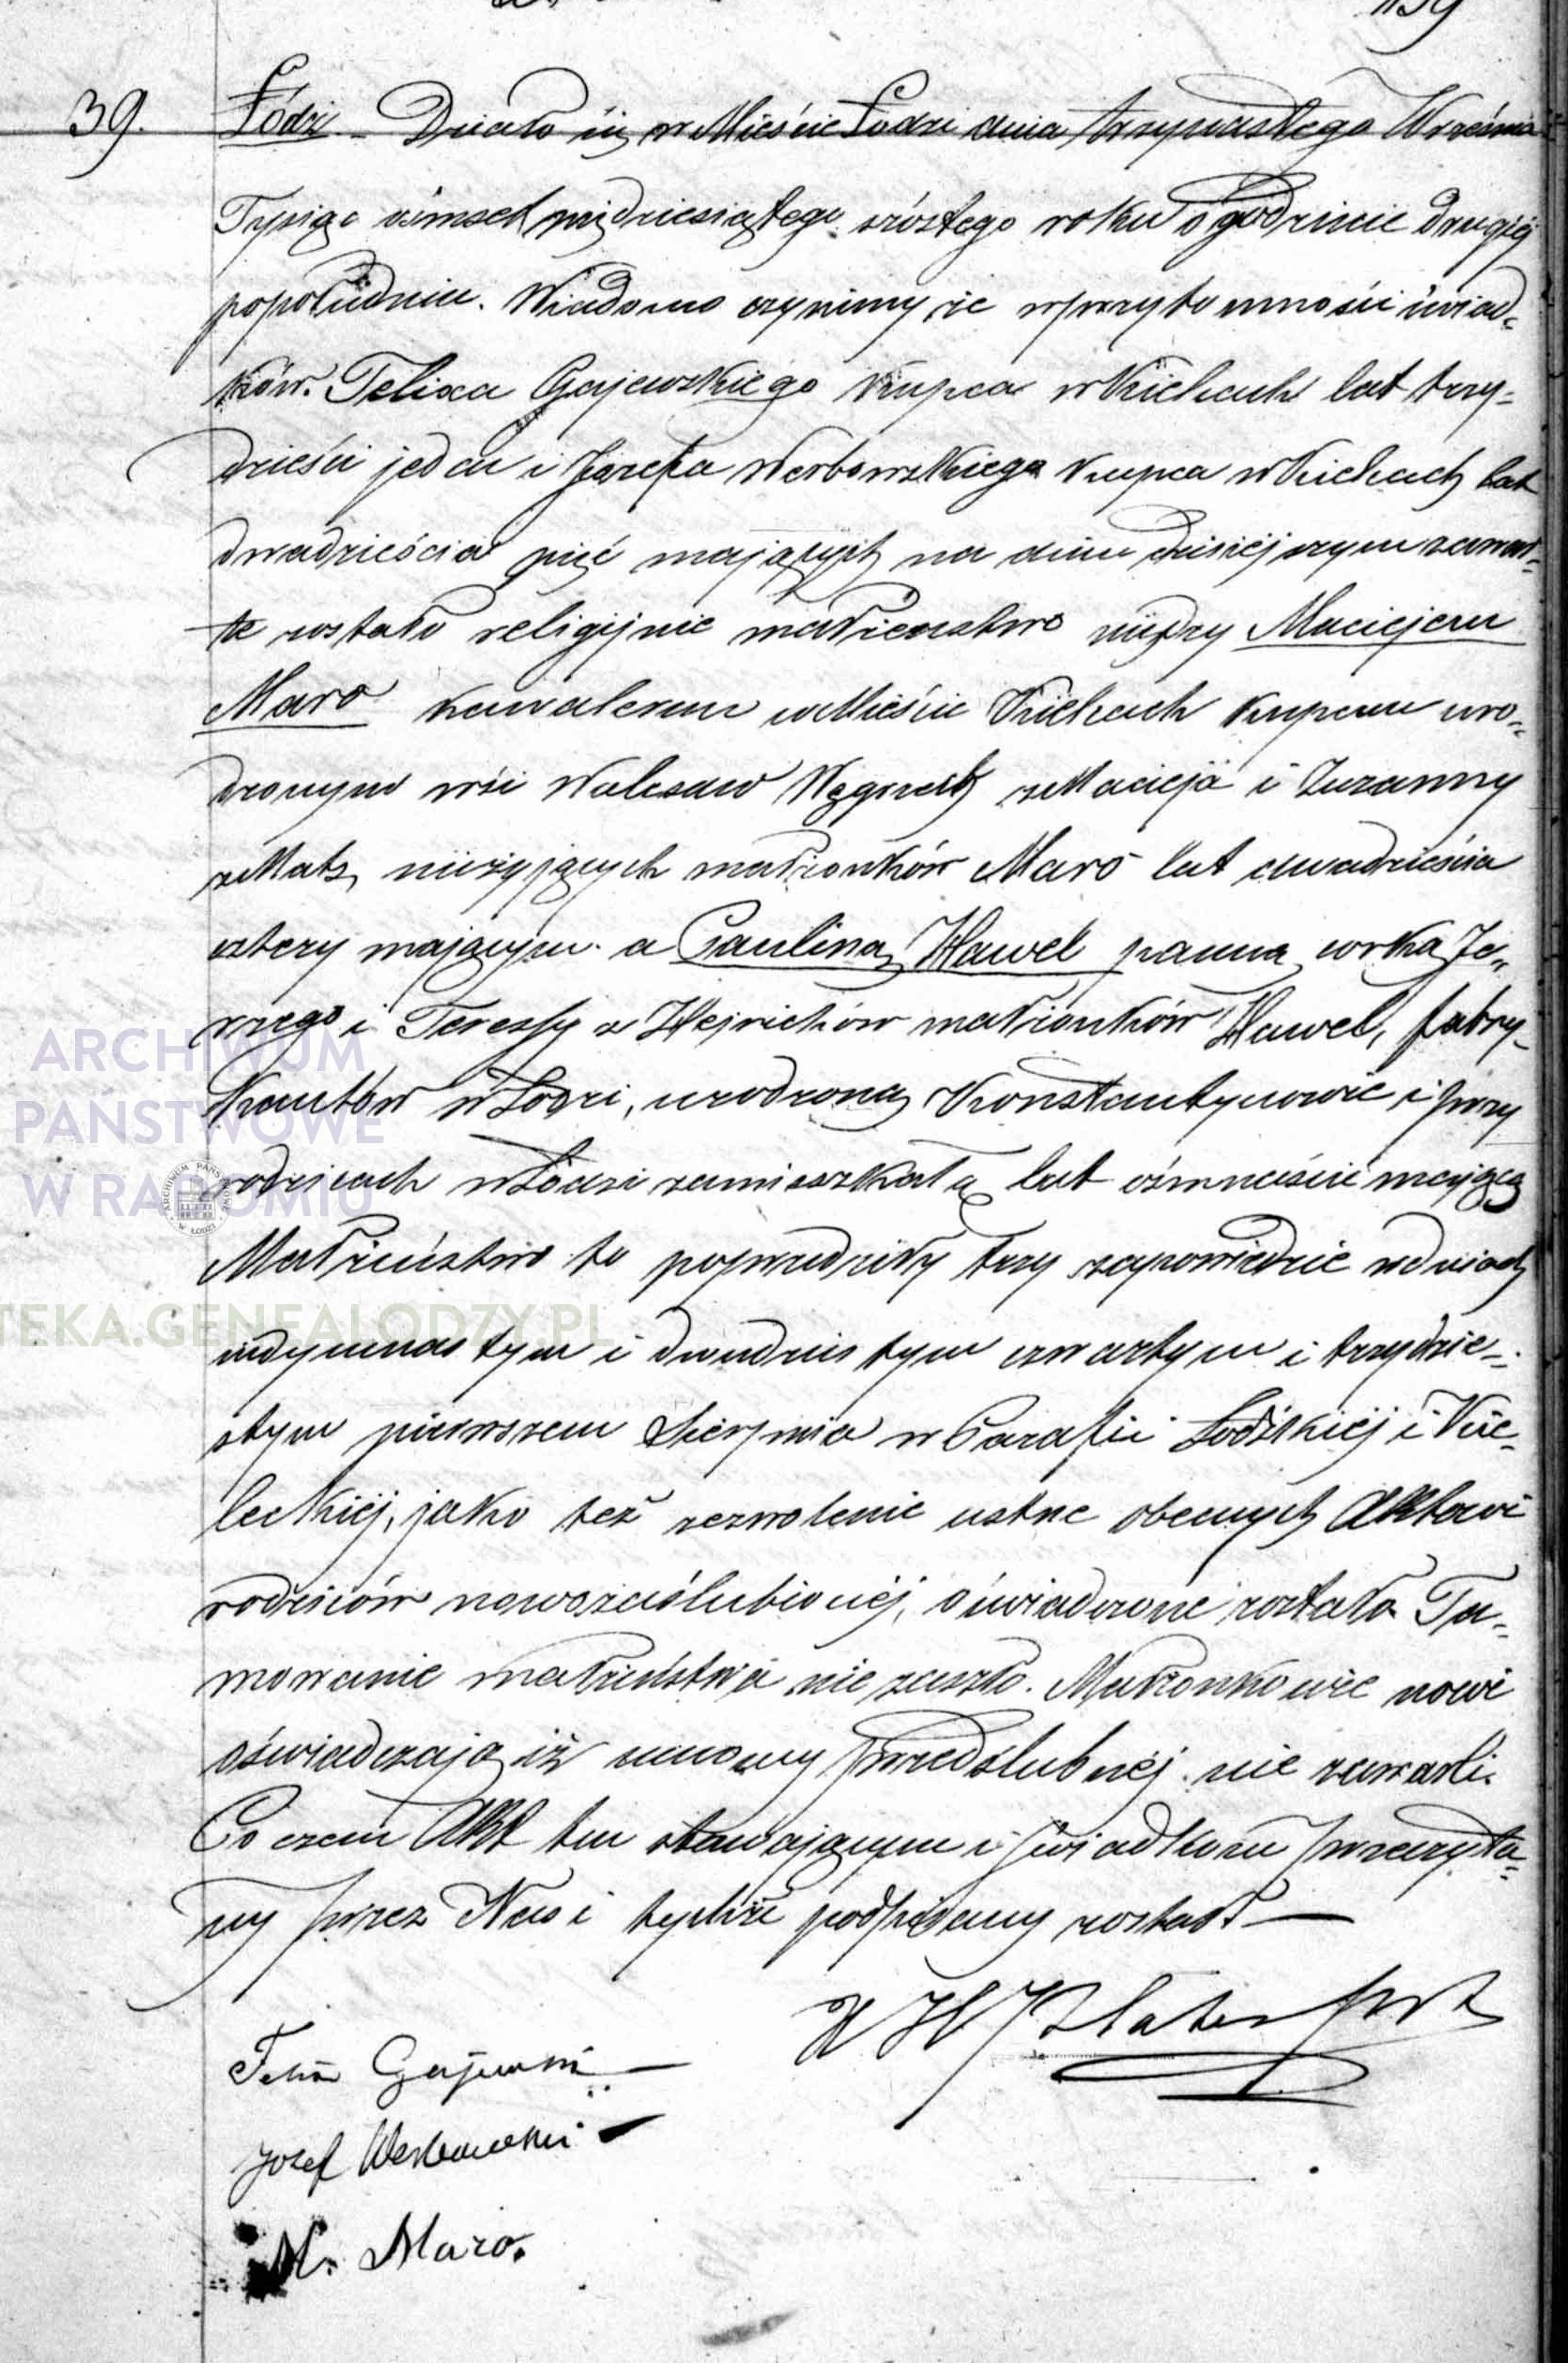 139
39. Łódź – Działo się w Mieście Łodzi dnia trzynastego Września
Tysiąc ośmset piędziesiątego szóstego roku o godzinie drugiéj
popołudniu. Wiadomo czynimy, że w przytomności świad=
ków. Felixa Gajewskiego kupca w Kielcach lat trzy=
dzieści jeden i Józefa Werbowskiego kupca w Kielcach lat
dwadzieścia pięć mających na dniu dzisiéjszym zawar=
te zostało religijnie małżeństwo między Maciejem
Maro kawalerem w Mieście Kielcach kupcem uro=
dzonym w wsi Walesaw Węgrzech z Macieja i Zuzanny
z Mats, nieżyjących małżonków Maro lat dwadzieścia
cztery mającym. a Pauliną Hawel panną, córką Je=
rzego i Teressy z Hejnichów małżonków Hawel, fabry=
kantów w Łodzi, urodzoną Konstantynowie i przy
rodzicach w Łodzi zamieszkałą lat ośmnaście mającą
Małżeństwo to poprzedziły trzy zapowiedzie w dniach
siedymnastym i dwudziestym czwartym i trzydzie=
stym pierwszem Sierpnia w Parafii Łodzkiéj i Kie=
leckiéj, jako też zezwolenie ustne obecnych Aktowi
rodziców nowozaślubionéj, oświadczone zostało Ta=
mowanie małżeństwa nie zaszło. Małżonkowie nowi
oświadczają iż umowy przedślubnéj nie zawarli.
Po czem Akt ten stawającym i świadkom przeczyta=
ny przez Nas i tychże podpisany został —
Felix Gajewski
Józef Werbowski
M. Maro.
ARCHIWUM
PAŃSTWOWE
W RADOMIU
ARCHIWUM PAŃSTWOWE W ŁODZI
TEKA.GENEALODZY.PL